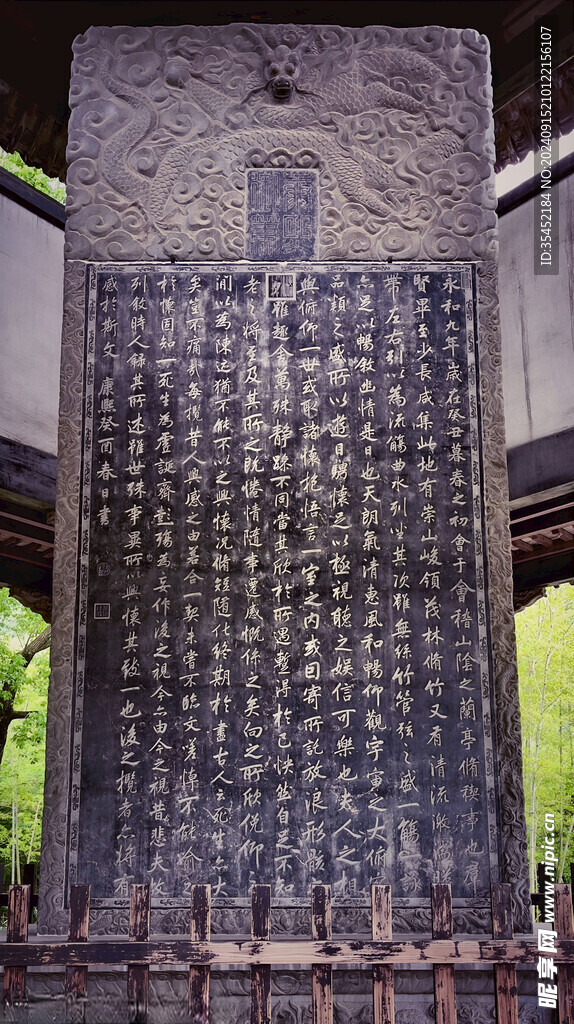 永和九年歲在癸丑暮春之初會于會稽山陰之蘭亭脩稧事也羣
賢畢至少長咸集此地有崇山峻領茂林脩竹又有清流激湍暎
帶左右引以為流觴曲水列坐其次雖無絲竹管弦之盛一觴一詠
亦足以暢敘幽情是日也天朗氣清惠風和暢仰觀宇宙之大俯察
品類之盛所以遊目騁懷足以極視聽之娛信可樂也夫人之相
與俯仰一世或取諸懷抱悟言一室之內或因寄所託放浪形骸
雖趣舍萬殊靜躁不同當其欣於所遇暫得於己怏然自足不知
老之將至及其所之既惓情隨事遷感慨係之矣向之所欣俛仰之
間以為陳迹猶不能不以之興懷況脩短隨化終期於盡古人云死生亦大
矣豈不痛哉每攬昔人興感之由若合一契未嘗不臨文嗟悼不能喻之
於懷固知一死生為虛誕齊彭殤為妄作後之視今亦由今之視昔悲夫故
列敘時人錄其所述雖世殊事異所以興懷其致一也後之攬者亦將有
感於斯文 康熙癸酉春日書
ID:35452184 NO:20240915210122156107
昵享网 www.nipic.cn